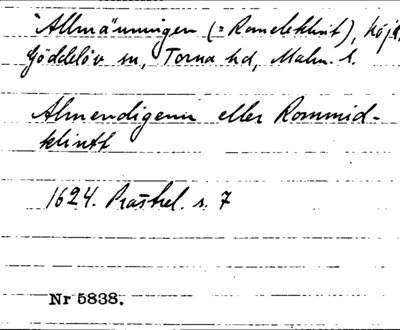 "Allmänningen (= Romeleklint), höjd,
Göddelöv sn, Torna hd, Malm. l.
Almendigenn eller Rommid-
klintt
1624. Prästrel. s. 7
Nr 5838.